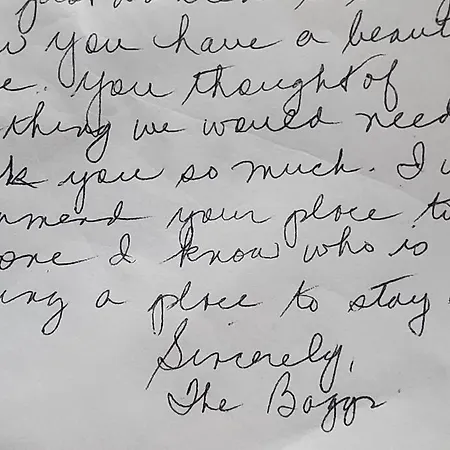 you have a beaut
e. You thought of
thing we would need
k you so much. I w
mmend your place to
one I know who is
ing a place to stay
Sincerely,
The Boggs